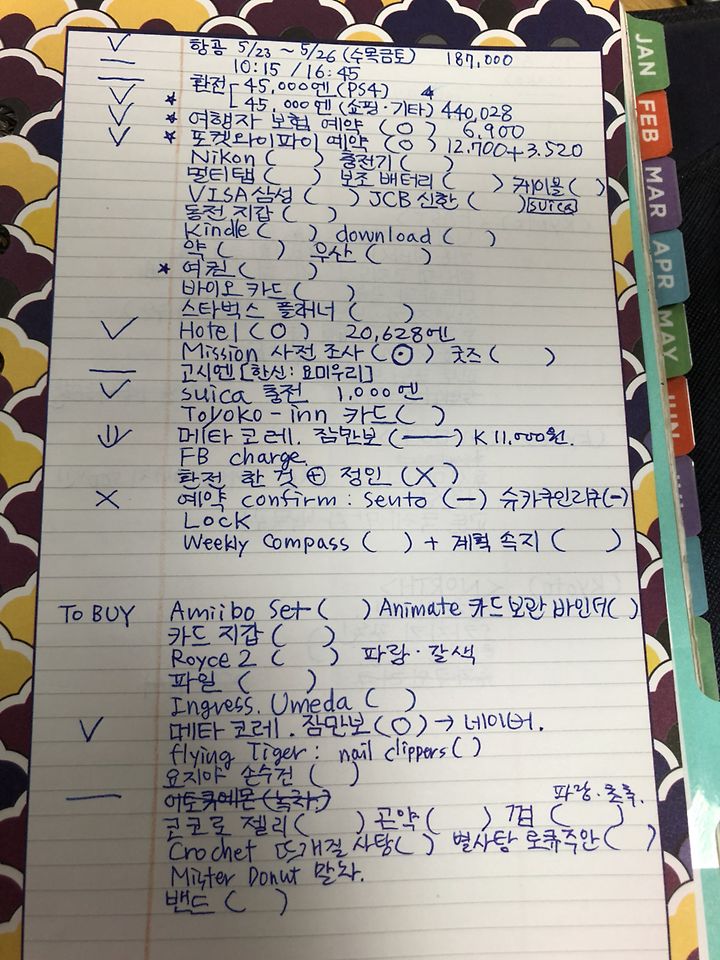 ✓ 항공 5/23 ~ 5/26 (수목금토) 187,000
— 10:15 / 16:45
— 환전 45,000엔 (PS4)
✓ * 45,000엔 (쇼핑·기타) 440,028
✓ * 여행자 보험 예약 (O) 6,900
✓ * 포켓와이파이 예약 (O) 12,700+3,520
Nikon ( ) 충전기 ( )
멀티탭 ( ) 보조 배터리 ( ) 케이블 ( )
VISA 삼성 ( ) JCB 신한 ( ) suica
동전 지갑 ( )
Kindle ( ) download ( )
약 ( ) 우산 ( )
* 여권 ( )
바이오 카드 ( )
스타벅스 플래너 ( )
✓ Hotel (O) 20,628엔
Mission 사전 조사 (O) 굿즈 ( )
— 고시엔 [한신:요미우리]
✓ suica 충전 1,000엔
Toyoko-inn 카드 ( )
메타 코레. 잠만보 (—) ₭ 11,000원.
FB charge.
환전 한 것 + 정인 (X)
X 예약 confirm : sento (-) 슈카쿠인리큐(-)
Lock
Weekly Compass ( ) + 계획 속지 ( )
To BUY Amiibo Set ( ) Animate 카드 보관 바인더 ( )
카드 지갑 ( )
Royce 2 ( ) 파랑·갈색
파일 ( )
Ingress. Umeda ( )
✓ 메타 코레. 잠만보 (O) → 네이버.
flying Tiger : nail clippers ( )
요지야 손수건 ( )
— 이토큐에몬 (녹차.) 파랑·초록.
코코로 젤리 ( ) 곤약 ( ) 껌 ( )
Crochet 뜨개질 사탕 ( ) 별사탕 토큐주안 ( )
Mister Donut 말차.
밴드 ( )
JAN
FEB
MAR
APR
MAY
JUN